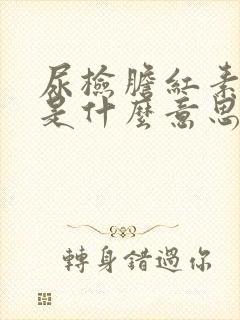 尿檢膽紅素
是什麼意思
轉身錯過你